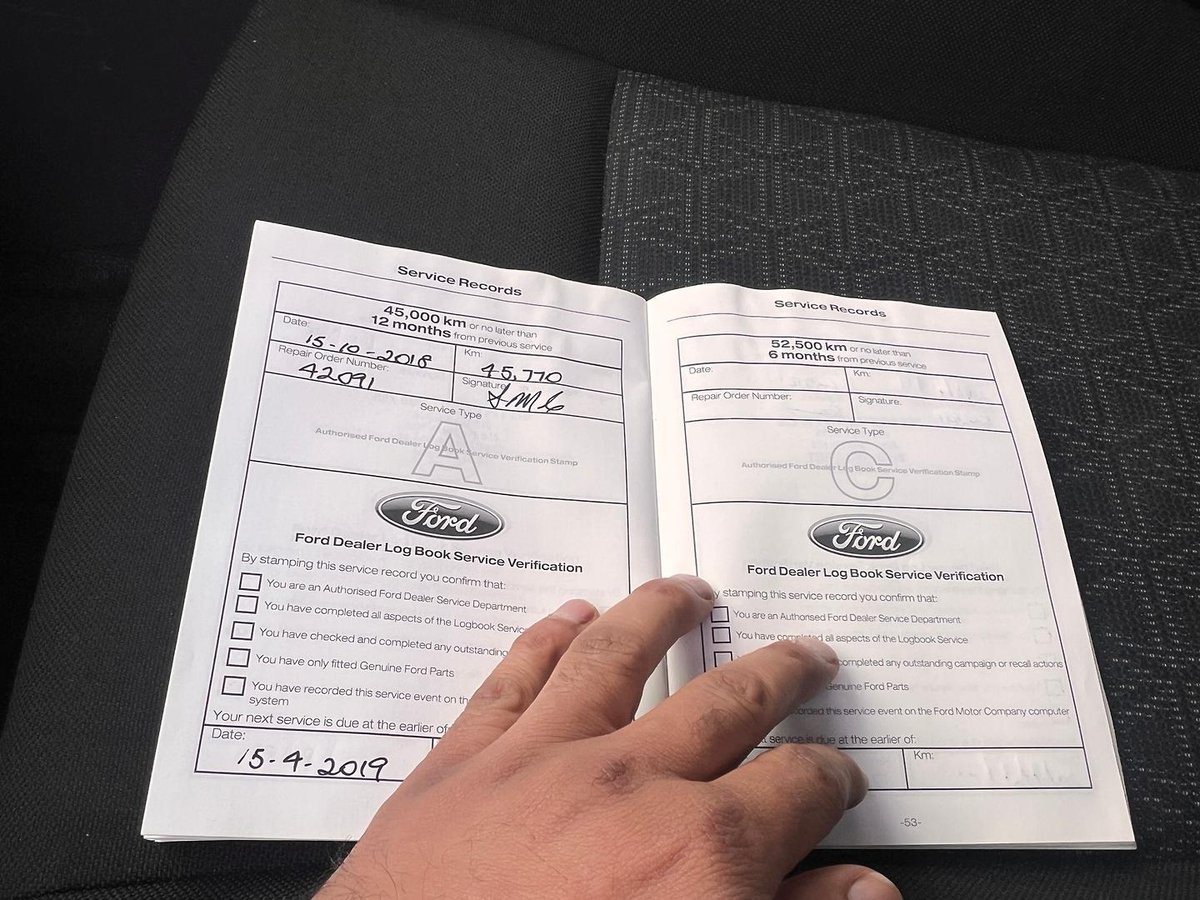 Service Records
45,000 km or no later than
12 months from previous service
Date:
15-10-2018
Km:
45,770
Repair Order Number:
42091
Signature:
Service Type
A
Authorised Ford Dealer Log Book Service Verification Stamp
Ford
Ford Dealer Log Book Service Verification
By stamping this service record you confirm that:
You are an Authorised Ford Dealer Service Department
You have completed all aspects of the Logbook Service
You have checked and completed any outstanding
You have only fitted Genuine Ford Parts
You have recorded this service event on the
system
Your next service is due at the earlier of
Date:
15-4-2019
Service Records
52,500 km or no later than
6 months from previous service
Date:
Km:
Repair Order Number:
Signature:
Service Type
C
Authorised Ford Dealer Log Book Service Verification Stamp
Ford
Ford Dealer Log Book Service Verification
By stamping this service record you confirm that:
You are an Authorised Ford Dealer Service Department
You have completed all aspects of the Logbook Service
completed any outstanding campaign or recall actions
Genuine Ford Parts
recorded this service event on the Ford Motor Company computer
next service is due at the earlier of:
Km:
-53-